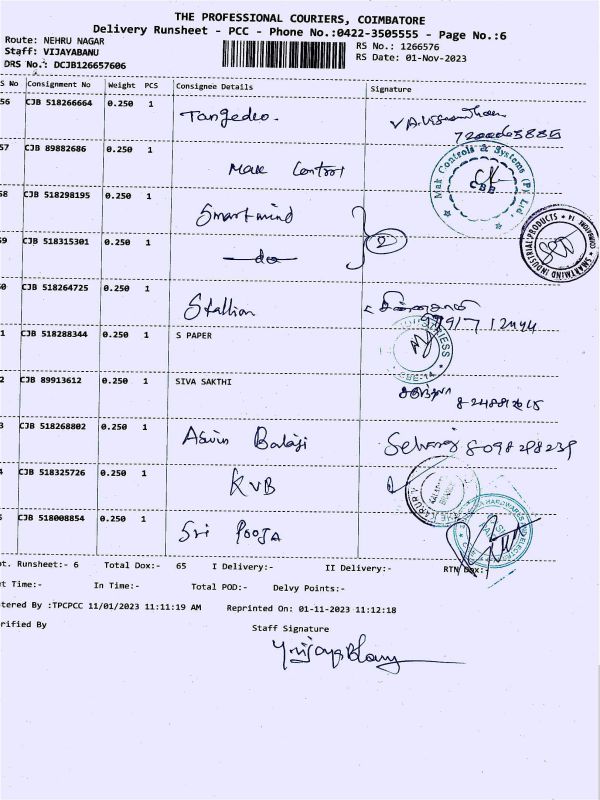 THE PROFESSIONAL COURIERS, COIMBATORE
Delivery Runsheet - PCC - Phone No.:0422-3505555 - Page No.:6
Route: NEHRU NAGAR
RS No.: 1266576
Staff: VIJAYABANU
RS Date: 01-Nov-2023
DRS No.: DCJB126657606
S No Consignment No Weight PCS Consignee Details Signature
56 CJB 518266664 0.250 1 Tangedco.
57 CJB 89882686 0.250 1 Mak Control
Mak Controls & Systems (P) Ltd. CBE
58 CJB 518298195 0.250 1 Smartmind
59 CJB 518315301 0.250 1 do 2
SMARTMIND INDUSTRIAL PRODUCTS
0 CJB 518264725 0.250 1 Stallion
1 CJB 518288344 0.250 1 S PAPER
CBE-14
2 CJB 89913612 0.250 1 SIVA SAKTHI
3 CJB 518268802 0.250 1 Asvin Balaji Selvaraj 8098298239
4 CJB 518325726 0.250 1 KVB
5 CJB 518008854 0.250 1 Sri Pooja
ot. Runsheet:- 6 Total Dox:- 65 I Delivery:- II Delivery:- RTN Dox:-
ut Time:- In Time:- Total POD:- Delvy Points:-
tered By :TPCPCC 11/01/2023 11:11:19 AM Reprinted On: 01-11-2023 11:12:18
erified By Staff Signature